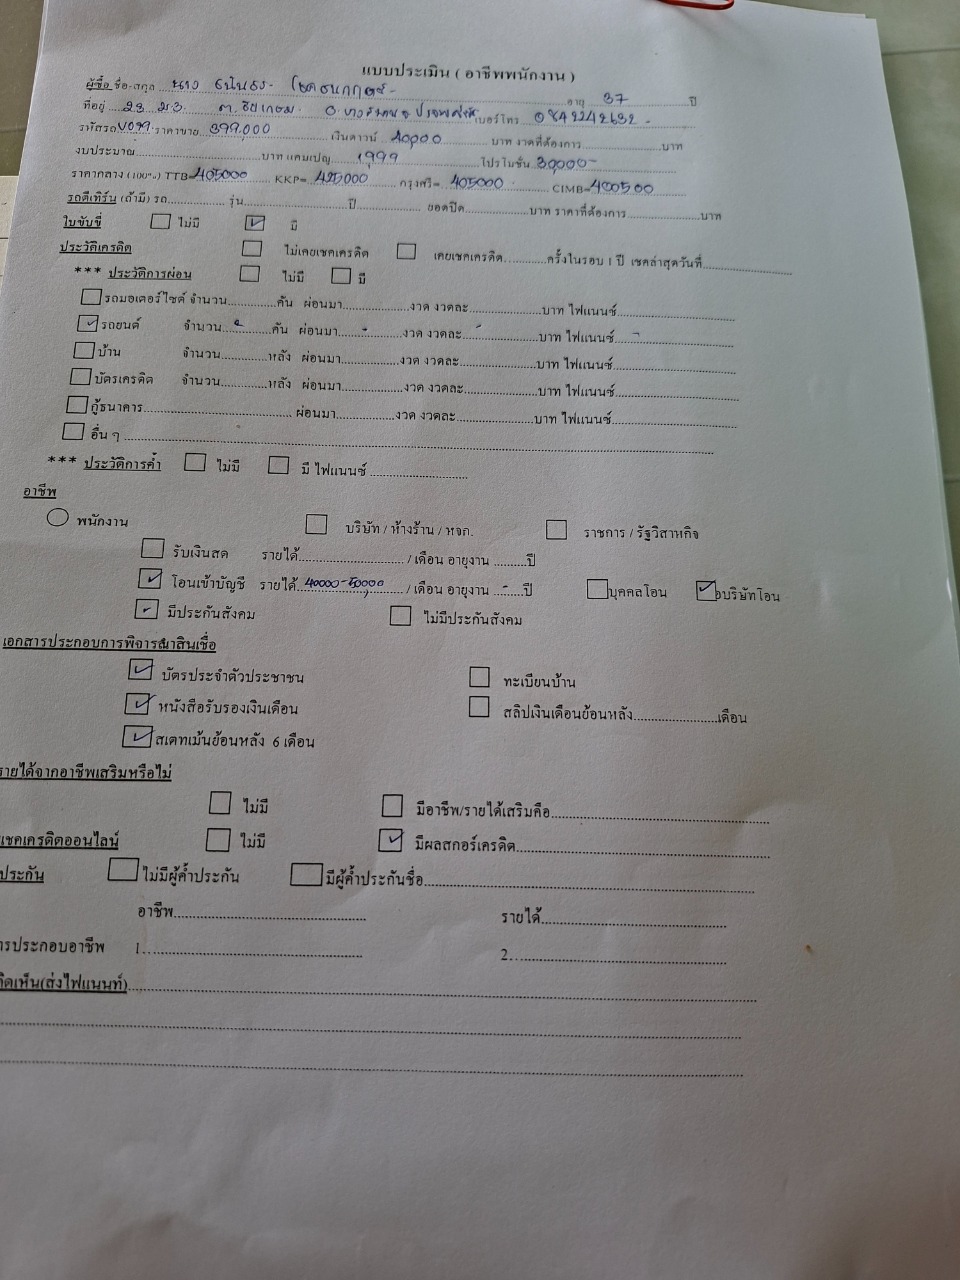 แบบประเมิน ( อาชีพพนักงาน )
ผู้ซื้อ ชื่อ-สกุล นาง อายุ 37 ปี
ที่อยู่ 23 ม.3 ต. เบอร์โทร 0842242632
รหัสรถ V099 ราคาขาย 399,000 เงินดาวน์ 40,000 บาท งวดที่ต้องการ............บาท
งบประมาณ............บาท แคมเปญ 1,999 โปรโมชั่น 30,000-
ราคากลาง (100%) TTB=405000 KKP= 425000 กรุงศรี= 405000 CIMB=400500
รถตีเทิร์น (ถ้ามี) รถ............รุ่น............ปี............ยอดปิด............บาท ราคาที่ต้องการ............บาท
ใบขับขี่ ☐ ไม่มี ☑ มี
ประวัติเครดิต ☐ ไม่เคยเชคเครดิต ☐ เคยเชคเครดิต............ครั้งในรอบ 1 ปี เชคล่าสุดวันที่............
*** ประวัติการผ่อน ☐ ไม่มี ☐ มี
☐ รถมอเตอร์ไซด์ จำนวน............คัน ผ่อนมา............งวด งวดละ............บาท ไฟแนนซ์............
☑ รถยนต์ จำนวน............คัน ผ่อนมา....-....งวด งวดละ....-....บาท ไฟแนนซ์....-....
☐ บ้าน จำนวน............หลัง ผ่อนมา............งวด งวดละ............บาท ไฟแนนซ์............
☐ บัตรเครดิต จำนวน............หลัง ผ่อนมา............งวด งวดละ............บาท ไฟแนนซ์............
☐ กู้ธนาคาร............ ผ่อนมา............งวด งวดละ............บาท ไฟแนนซ์............
☐ อื่น ๆ ............
*** ประวัติการค้ำ ☐ ไม่มี ☐ มี ไฟแนนซ์ ............
อาชีพ
○ พนักงาน ☐ บริษัท / ห้างร้าน / หจก. ☐ ราชการ / รัฐวิสาหกิจ
☐ รับเงินสด รายได้............ / เดือน อายุงาน ............ปี
☑ โอนเข้าบัญชี รายได้ 40000-50000 / เดือน อายุงาน ....-....ปี ☐ บุคคลโอน ☑ บริษัทโอน
☑ มีประกันสังคม ☐ ไม่มีประกันสังคม
เอกสารประกอบการพิจารณาสินเชื่อ
☑ บัตรประจำตัวประชาชน ☐ ทะเบียนบ้าน
☑ หนังสือรับรองเงินเดือน ☐ สลิปเงินเดือนย้อนหลัง............เดือน
☑ สเตทเม้นย้อนหลัง 6 เดือน
รายได้จากอาชีพเสริมหรือไม่
☐ ไม่มี ☐ มีอาชีพ/รายได้เสริมคือ............
เชคเครดิตออนไลน์ ☐ ไม่มี ☑ มีผลสกอร์เครดิต............
ประกัน ☐ ไม่มีผู้ค้ำประกัน ☐ มีผู้ค้ำประกันชื่อ............
อาชีพ............ รายได้............
ารประกอบอาชีพ 1............ 2............
คิดเห็น(ส่งไฟแนนท์)............